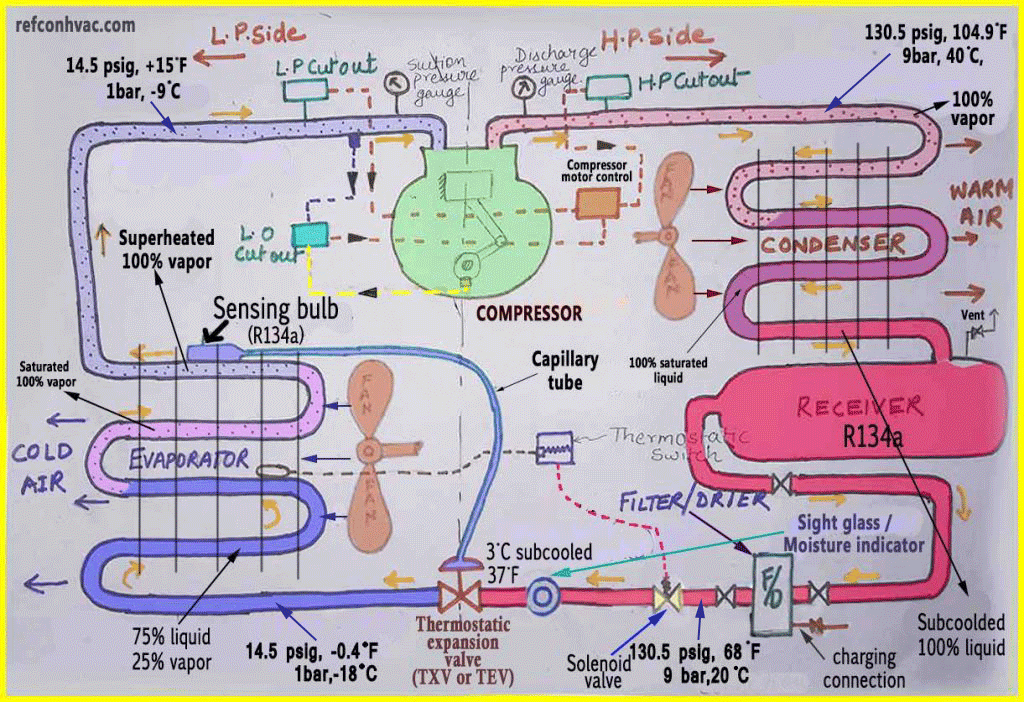 refconhvac.com
L.P.Side
H.P.Side
130.5 psig, 104.9°F
9bar, 40°C,
14.5 psig, +15°F
1bar, -9°C
L.P Cutout
Suction
pressure
gauge
Discharge
pressure
gauge.
H.P Cutout
100%
vapor
Compressor
motor control
FAN
FAN
WARM
AIR
CONDENSER
L.O
Cutout
Superheated
100% vapor
COMPRESSOR
Sensing bulb
(R134a)
Vent
Saturated
100% vapor
Capillary
tube
100% saturated
liquid
FAN
FAN
RECEIVER
R134a
Thermostatic
Switch
COLD
AIR
EVAPORATOR
FILTER/DRIER
Sight glass /
Moisture indicator
3°C subcooled
37°F
F/D
75% liquid
25% vapor
14.5 psig, -0.4°F
1bar,-18°C
Thermostatic
expansion
valve
(TXV or TEV)
Solenoid
valve
130.5 psig, 68°F
9 bar,20°C
charging
connection
Subcoolded
100% liquid